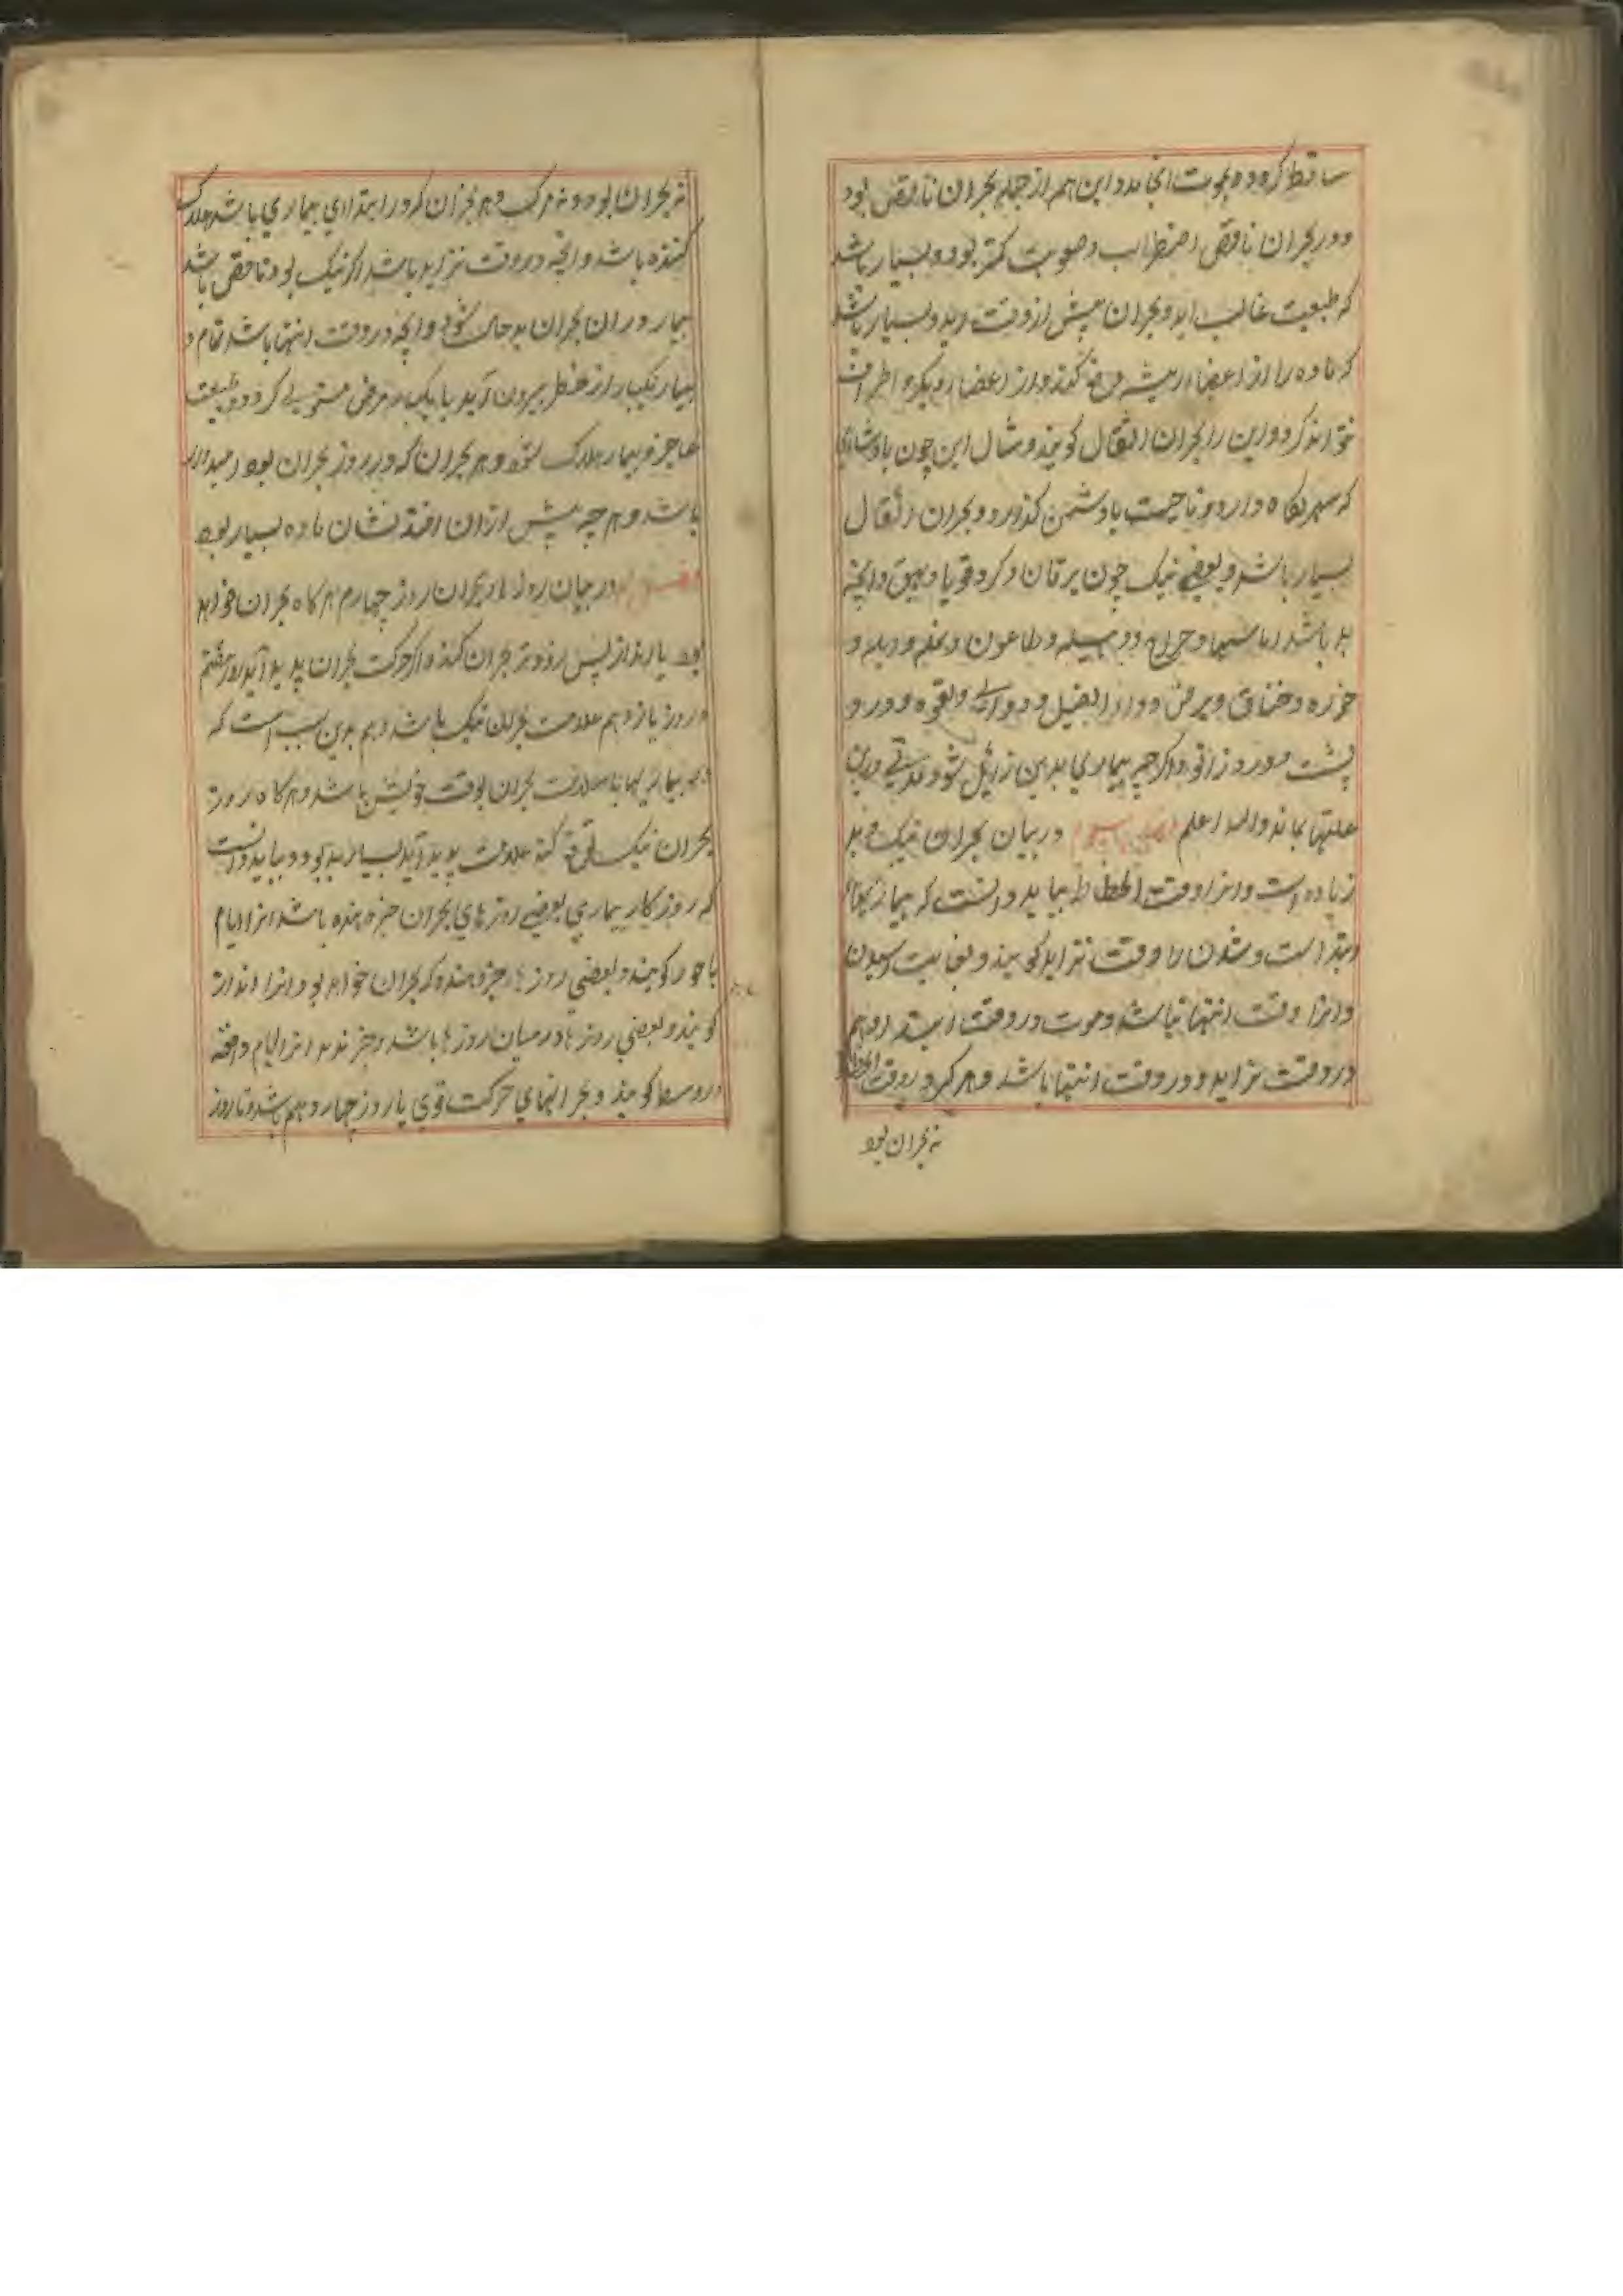 ساقط کرده و بموت انجامد و این هم از جمله بحران ناقص بود
و در بحران ناقص اضطراب و صعوبت کمتر بود و بسیار باشد
که طبیعت غالب اید و بحران پیش از وقت اید و بسیار باشد
که ماده را از اعضاء رئیسه دفع کند و از اعضاء دیگر و اطراف
نتواند کرد و این را بحران انتقال کویند و مثال این چون بادشاهی
که شهر نکاه دارد و ناحیت با دشمن کذارد و بحران انتقال
بسیار باشد و بعضی نیک چون یرقان و کرد قوبا و بهق و انچه
بد باشد اماسها و خراج و دبیله و طاعون و نمله و
خوره و خناق و برص و داء الفیل و دوالی و لقوه و درد
پشت و درد زانو و اکرچه بیماری بدین زایل شود مدتی درین
علتها بماند والله اعلم فصل سیوم در بیان بحران نیک و بد
زیاده است و انرا وقت انحطاط بباید دانست که بیماریها را
ابتدا است و شدن را وقت تزاید کویند و بغایت رسیدن
و انرا وقت انتها باشد و موت در وقت ابتدا و هم
در وقت تزاید و در وقت انتها باشد و هرکه در وقت انحطاط
نه بحران بود
نه بحران بود و نه مرک و هر بحران که در ابتدای بیماری باشد هلاک
کننده باشد و انچه در وقت تزاید باشد اکر نیک بود ناقص باشد
بیمار در ان بحران بد حال شود و انچه در وقت انتها باشد تمام و
بیمار یکبار از خطر بیرون آید یا یکبار مرض مستولی کردد و طبیعت
عاجز و بیمار هلاک شود و هر بحران که در روز بحران بود امیدوار
باشد و هر چه پیش از ان افتد نشان ماده بسیار بود
فصل در بیان روزهای بحران روز چهارم هرکاه بحران خواهد
بود یا از پس روز بحران کند و اکر حرکت بحران پدید آید روز هفتم
و روز یازدهم علامت بحران نیک باشد و هم بدین سبب است که
بیماریها با سلامت بحران بوقت خویش باشد و هرکاه روز
بحران نیک علامت پدید آید بسیار بد بود و بباید دانست
که روز کار بیماری بعضی روزهای بحران خبر دهنده باشد انرا ایام
باحور کویند و بعضی روزها خبر دهند که بحران خواهد بود و انرا انذار
کویند و بعضی روزها در میان روزها باشد و خبر ندهد انرا ایام واقعه
در وسط کویند و بحرانهای حرکت قوی یا روز چهاردهم باشد و تا روز